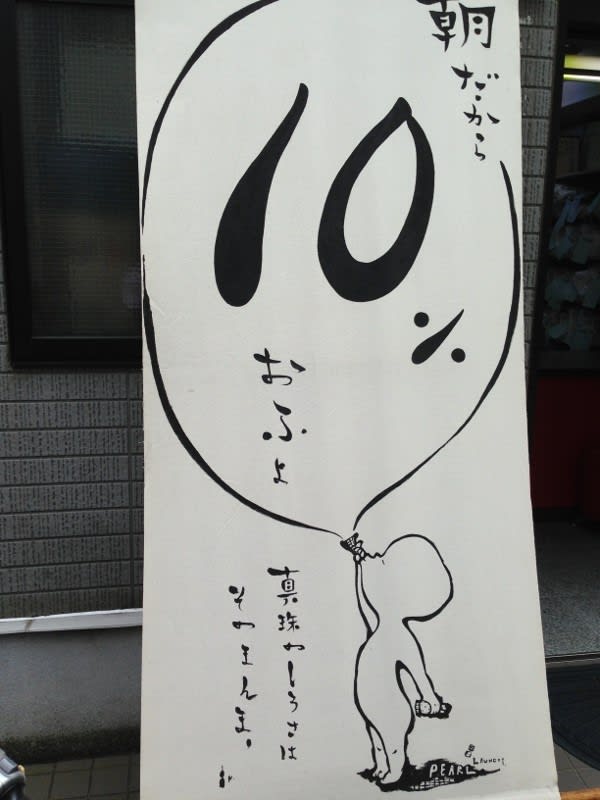 朝だから
10%
おふよ
真珠のしろさは
そのまんま。
PEARL
LAUNDRY